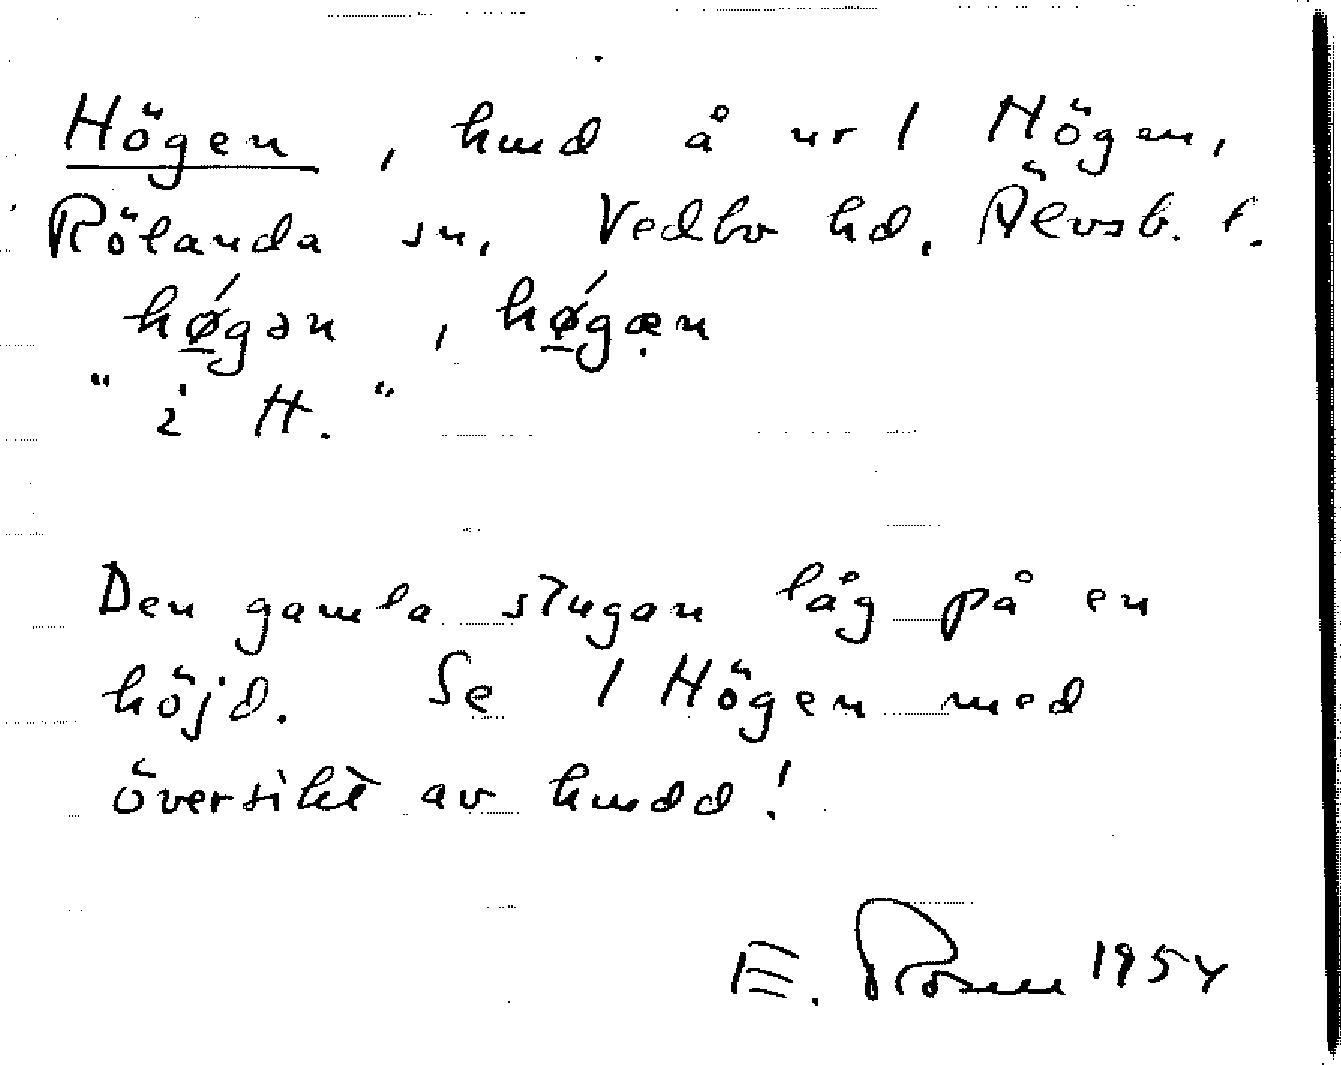 Högen, hmd å nr 1 Högen,
Rölanda sn, Vedbo hd. Älvsb. l.
hǿ̲gən, hǿ̲gæ̣n
"i H."
Den gamla stugan låg på en
höjd. Se 1 Högen med
översikt av hmdd!
E. Rosén 1954